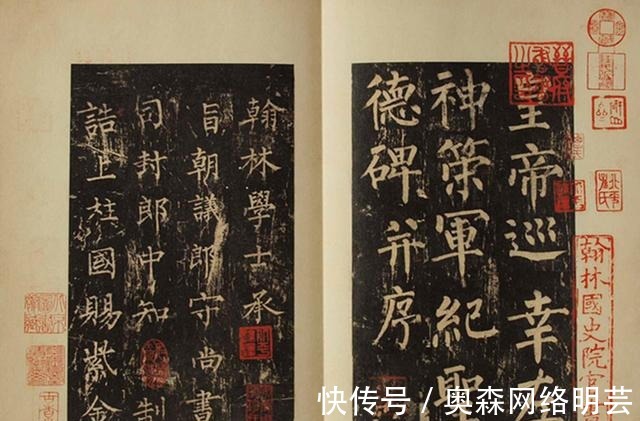 皇帝巡幸左
神策軍紀聖
德碑并序
翰林學士承
旨朝議郎守尚書
司封郎中知制
誥上柱國賜紫金
翰林國史院官
快传号／奥森网络明芸